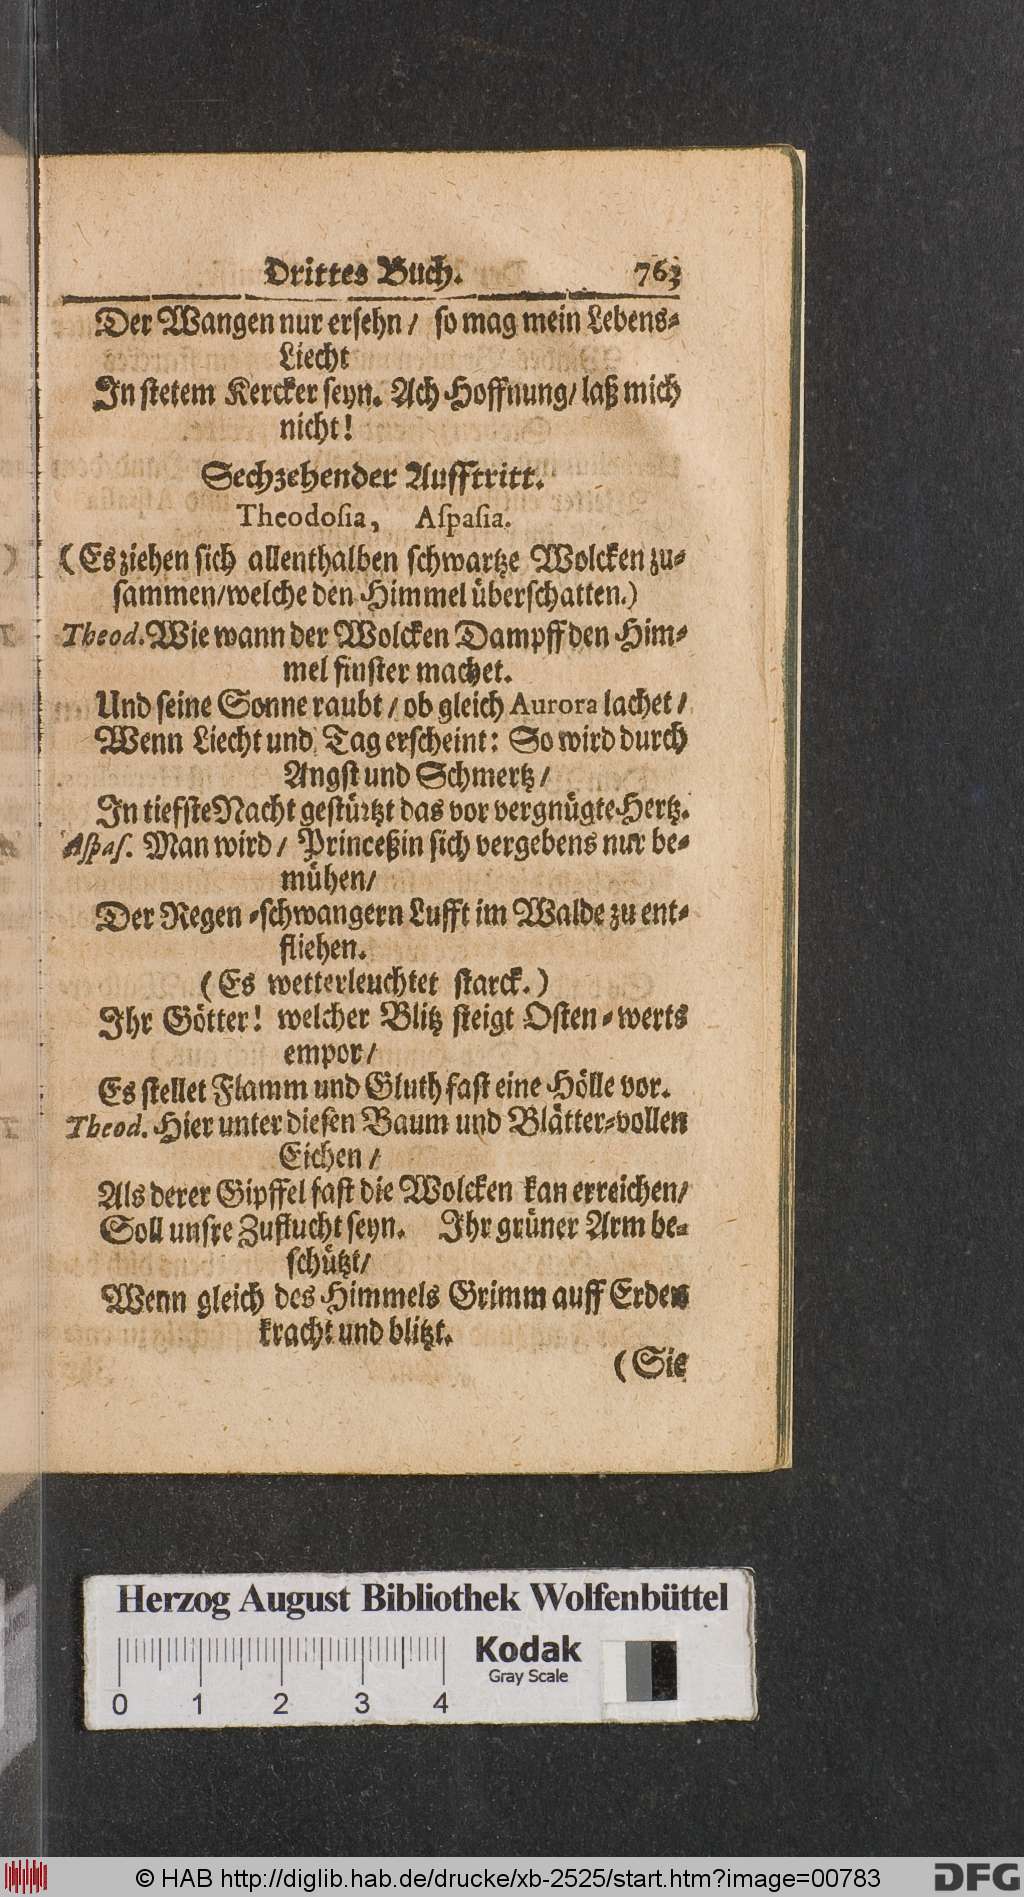 Drittes Buch. 763
Der Wangen nur ersehn / so mag mein Lebens-
Liecht
In stetem Kercker seyn. Ach Hoffnung/ laß mich
nicht!
Sechzehender Aufftritt.
Theodosia, Aspasia.
(Es ziehen sich allenthalben schwartze Wolcken zu-
sammen/welche den Himmel überschatten.)
Theod. Wie wann der Wolcken Dampff den Him-
mel finster machet.
Und seine Sonne raubt / ob gleich Aurora lachet /
Wenn Liecht und Tag erscheint: So wird durch
Angst und Schmertz /
In tiefste Nacht gestürtzt das vor vergnügte Hertz.
Aspas. Man wird / Princeßin sich vergebens nur be-
mühen/
Der Regen-schwangern Lufft im Walde zu ent-
fliehen.
(Es wetterleuchtet starck.)
Ihr Götter! welcher Blitz steigt Osten-werts
empor /
Es stellet Flamm und Gluth fast eine Hölle vor.
Theod. Hier unter diesen Baum und Blätter-vollen
Eichen /
Als derer Gipffel fast die Wolcken kan erreichen/
Soll unsre Zuflucht seyn. Ihr grüner Arm be-
schützt/
Wenn gleich des Himmels Grimm auff Erden
kracht und blitzt.
(Sie
Herzog August Bibliothek Wolfenbüttel
Kodak
Gray Scale
0 1 2 3 4
© HAB http://diglib.hab.de/drucke/xb-2525/start.htm?image=00783
DFG